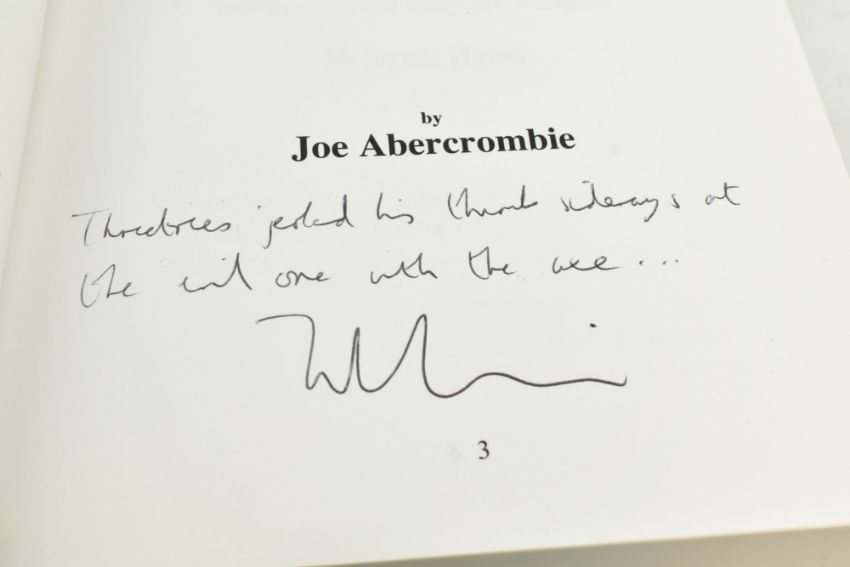 by
Joe Abercrombie
Threetrees jerked his thumb sideways at
the evil one with the axe...
3